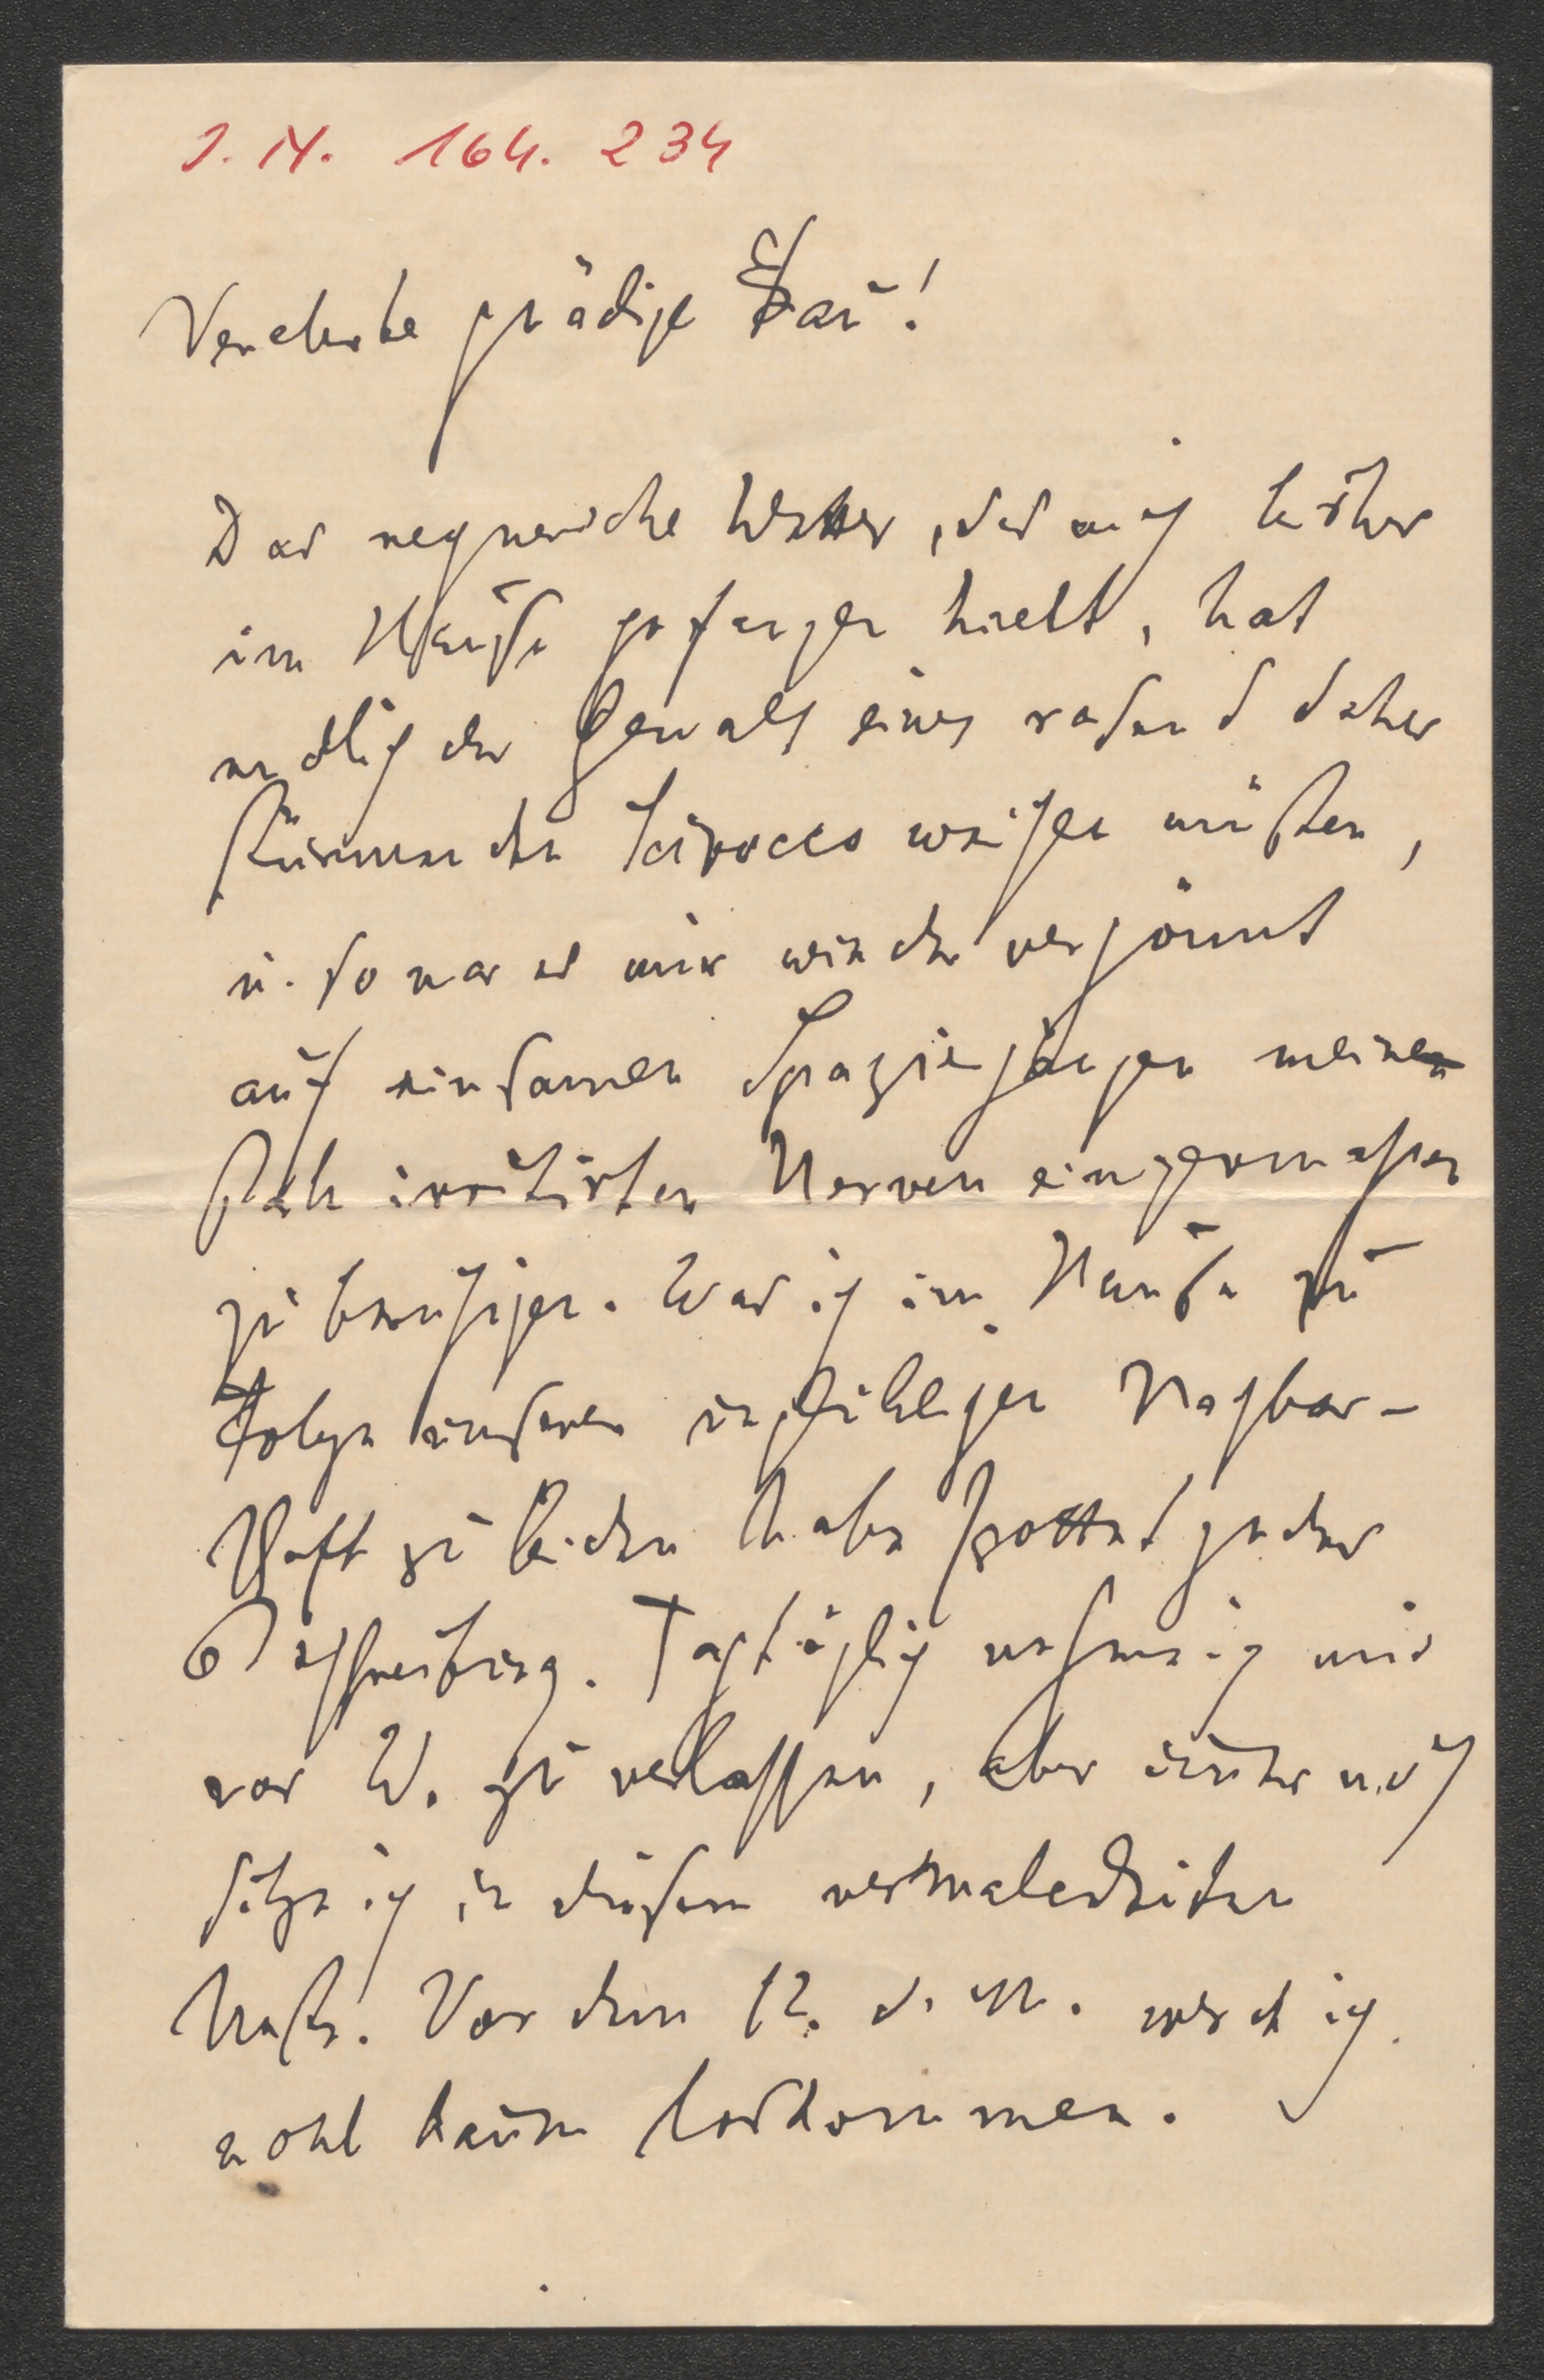 J. N. 164. 234
Verehrte gnädige Frau!
Das regnerische Wetter, das mich bisher
im Hause gefangen hielt, hat
endlich der Gewalt eines rasend daher
stürmenden Scirocco weichen müssen,
u. so war es mir wieder vergönnt
auf einsamen Spaziergängen meine
stark irritirten Nerven einigermassen
zu beruhigen. Was ich im Hause zu
Folge unserer unglückligen Nachbar-
schaft zu leiden habe spottet jeder
Beschreibung. Tagtäglich nehme ich mir
vor W. zu verlassen, aber immer noch
sitze ich in diesem vermaledeiten
Neste. Vor dem 12. d. M. werde ich
wohl kaum loskommen.